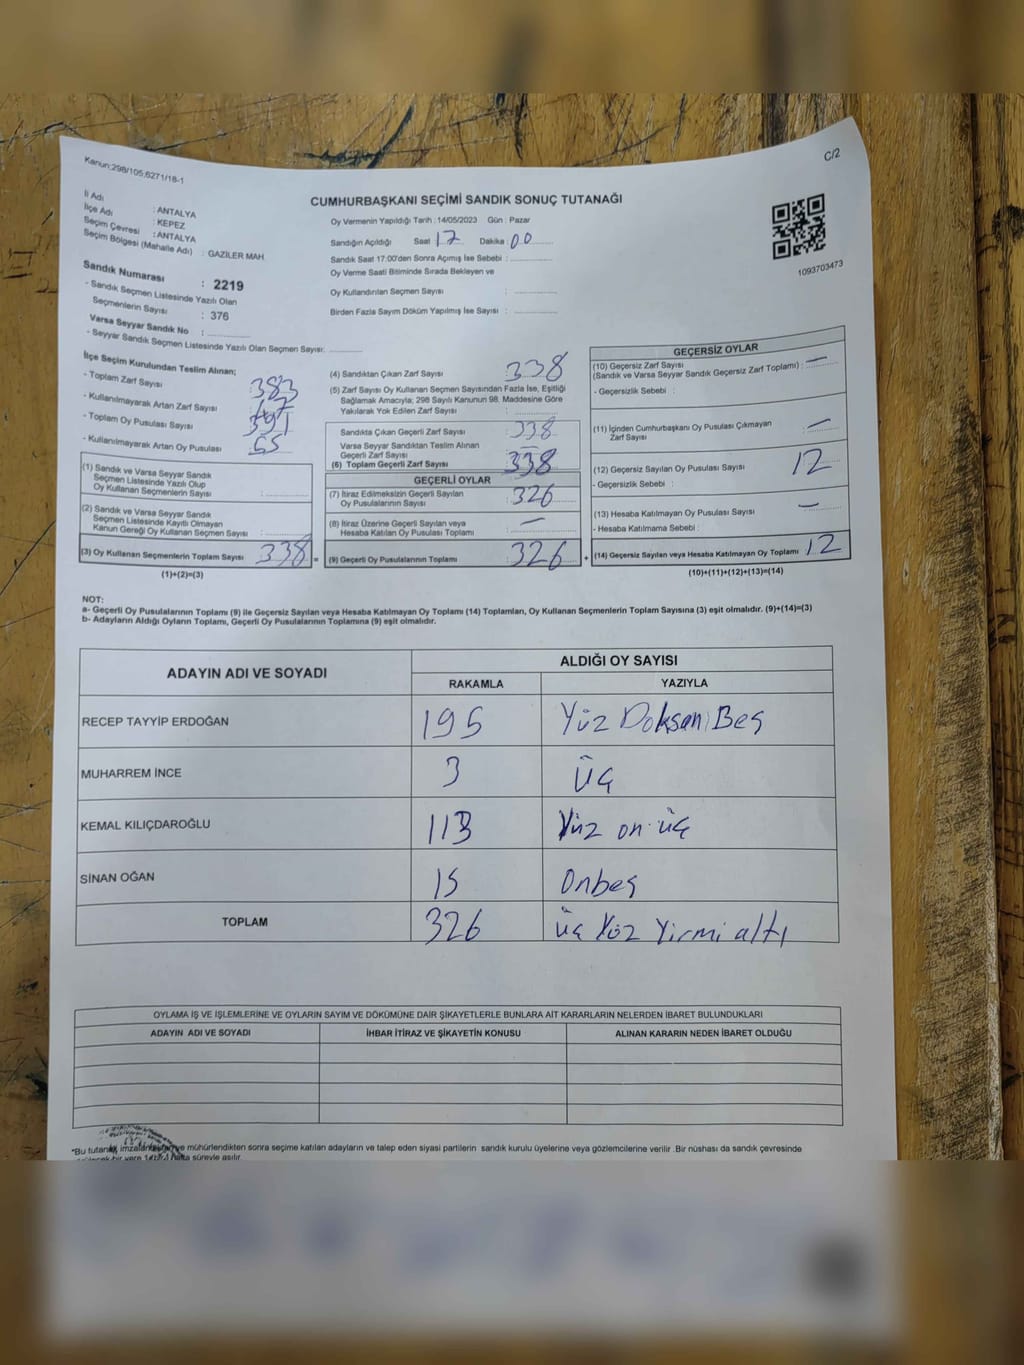 Kanun:298/105,6271/18-1
C/2
CUMHURBAŞKANI SEÇİMİ SANDIK SONUÇ TUTANAĞI
İl Adı : ANTALYA
İlçe Adı : KEPEZ
Seçim Çevresi : ANTALYA
Seçim Bölgesi (Mahalle Adı) : GAZİLER MAH.
Sandık Numarası : 2219
- Sandık Seçmen Listesinde Yazılı Olan
Seçmenlerin Sayısı : 376
Varsa Seyyar Sandık No :
- Seyyar Sandık Seçmen Listesinde Yazılı Olan Seçmen Sayısı:
Oy Vermenin Yapıldığı Tarih : 14/05/2023 Gün : Pazar
Sandığın Açıldığı Saat 17 Dakika 00
Sandık Saat 17:00'den Sonra Açımış İse Sebebi :
Oy Verme Saati Bitiminde Sırada Bekleyen ve
Oy Kullandırılan Seçmen Sayısı :
Birden Fazla Sayım Döküm Yapılmış İse Sayısı :
1093703473
İlçe Seçim Kurulundan Teslim Alınan;
- Toplam Zarf Sayısı : 383
- Kullanılmayarak Artan Zarf Sayısı :
- Toplam Oy Pusulası Sayısı : 391
- Kullanılmayarak Artan Oy Pusulası :
(1) Sandık ve Varsa Seyyar Sandık
Seçmen Listesinde Yazılı Olup
Oy Kullanan Seçmenlerin Sayısı :
(2) Sandık ve Varsa Seyyar Sandık
Seçmen Listesinde Kayıtlı Olmayan
Kanun Gereği Oy Kullanan Seçmen Sayısı :
(3) Oy Kullanan Seçmenlerin Toplam Sayısı : 338 =
(1)+(2)=(3)
(4) Sandıktan Çıkan Zarf Sayısı : 338
(5) Zarf Sayısı Oy Kullanan Seçmen Sayısından Fazla İse, Eşitliği
Sağlamak Amacıyla; 298 Sayılı Kanunun 98. Maddesine Göre
Yakılarak Yok Edilen Zarf Sayısı :
Sandıkta Çıkan Geçerli Zarf Sayısı : 338
Varsa Seyyar Sandıktan Teslim Alınan
Geçerli Zarf Sayısı : —
(6) Toplam Geçerli Zarf Sayısı : 338
GEÇERLİ OYLAR
(7) İtiraz Edilmeksizin Geçerli Sayılan
Oy Pusulalarının Sayısı : 326
(8) İtiraz Üzerine Geçerli Sayılan veya
Hesaba Katılan Oy Pusulası Toplamı : —
(9) Geçerli Oy Pusulalarının Toplamı : 326 +
GEÇERSİZ OYLAR
(10) Geçersiz Zarf Sayısı
(Sandık ve Varsa Seyyar Sandık Geçersiz Zarf Toplamı) : —
- Geçersizlik Sebebi :
(11) İçinden Cumhurbaşkanı Oy Pusulası Çıkmayan
Zarf Sayısı : —
(12) Geçersiz Sayılan Oy Pusulası Sayısı : 12
- Geçersizlik Sebebi :
(13) Hesaba Katılmayan Oy Pusulası Sayısı : —
- Hesaba Katılmama Sebebi :
(14) Geçersiz Sayılan veya Hesaba Katılmayan Oy Toplamı : 12
(10)+(11)+(12)+(13)=(14)
NOT:
a- Geçerli Oy Pusulalarının Toplamı (9) ile Geçersiz Sayılan veya Hesaba Katılmayan Oy Toplamı (14) Toplamları, Oy Kullanan Seçmenlerin Toplam Sayısına (3) eşit olmalıdır. (9)+(14)=(3)
b- Adayların Aldığı Oyların Toplamı, Geçerli Oy Pusulalarının Toplamına (9) eşit olmalıdır.
ADAYIN ADI VE SOYADI ALDIĞI OY SAYISI
RAKAMLA YAZIYLA
RECEP TAYYİP ERDOĞAN 195 Yüz Doksan Beş
MUHARREM İNCE 3 Üç
KEMAL KILIÇDAROĞLU 113 Yüz on üç
SİNAN OĞAN 15 Onbeş
TOPLAM 326 Üç Yüz Yirmi altı
OYLAMA İŞ VE İŞLEMLERİNE VE OYLARIN SAYIM VE DÖKÜMÜNE DAİR ŞİKAYETLERLE BUNLARA AİT KARARLARIN NELERDEN İBARET BULUNDUKLARI
ADAYIN ADI VE SOYADI İHBAR İTİRAZ VE ŞİKAYETİN KONUSU ALINAN KARARIN NEDEN İBARET OLDUĞU
*Bu tutanak, ve mühürlendikten sonra seçime katılan adayların ve talep eden siyasi partilerin sandık kurulu üyelerine veya gözlemcilerine verilir .Bir nüshası da sandık çevresinde
bir yere süreyle asılır.